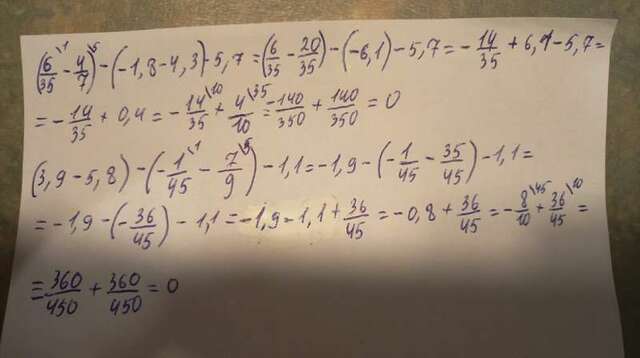 (6/35 \1 - 4/7 \5) - (-1,8-4,3) - 5,7 = (6/35 - 20/35) - (-6,1) - 5,7 = - 14/35 + 6,1 - 5,7 =
= - 14/35 + 0,4 = - 14/35 \10 + 4/10 \35 = -140/350 + 140/350 = 0
(3,9-5,8) - (- 1/45 \1 - 7/9 \5) - 1,1 = -1,9 - (- 1/45 - 35/45) - 1,1 =
= -1,9 - (- 36/45) - 1,1 = -1,9 - 1,1 + 36/45 = -0,8 + 36/45 = - 8/10 \45 + 36/45 \10 =
= 360/450 + 360/450 = 0